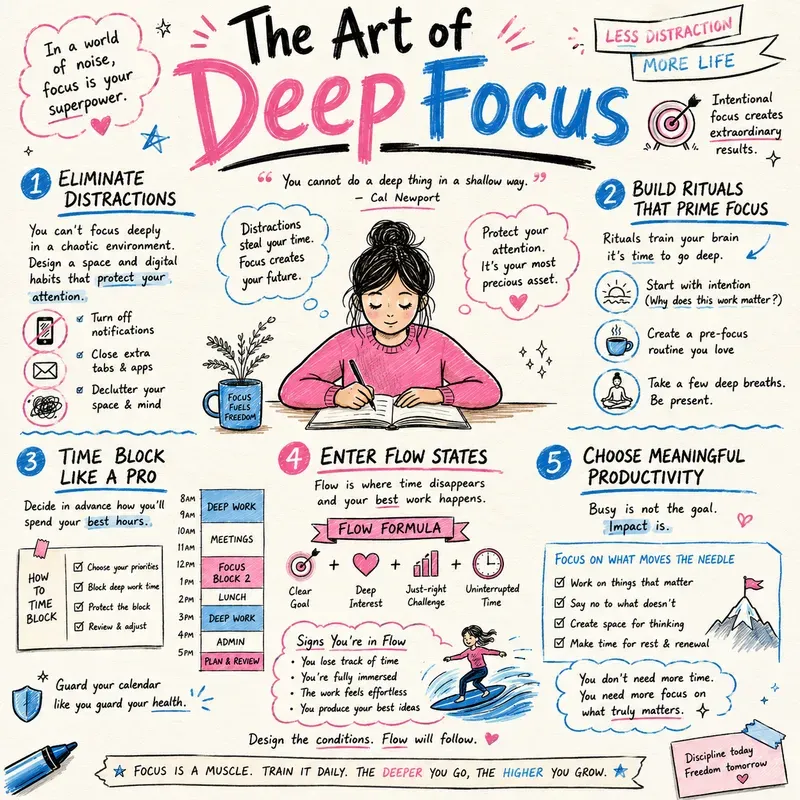 In a world
of noise,
focus is your
superpower.
The Art of
Deep Focus
LESS DISTRACTION
MORE LIFE
Intentional
focus creates
extraordinary
results.
1 ELIMINATE
DISTRACTIONS
You can't focus deeply
in a chaotic environment.
Design a space and digital
habits that protect your
attention.
Turn off
notifications
Close extra
tabs & apps
Declutter your
space & mind
“ You cannot do a deep thing in a shallow way. ”
– Cal Newport
Distractions
steal your time.
Focus creates
your future.
Protect your
attention.
It's your most
precious asset.
FOCUS
FUELS
FREEDOM
2 BUILD RITUALS
THAT PRIME FOCUS
Rituals train your brain
it's time to go deep.
Start with intention
(Why does this work matter?)
Create a pre-focus
routine you love
Take a few deep breaths.
Be present.
3 TIME BLOCK
LIKE A PRO
Decide in advance how you'll
spend your best hours.
HOW
TO
TIME
BLOCK
Choose your priorities
Block deep work time
Protect the block
Review & adjust
8AM
9AM
10AM
11AM
12PM
1PM
2PM
3PM
4PM
5PM
DEEP WORK
MEETINGS
FOCUS
BLOCK 2
LUNCH
DEEP WORK
ADMIN
PLAN & REVIEW
Guard your calendar
like you guard your health.
4 ENTER FLOW STATES
Flow is where time disappears
and your best work happens.
FLOW FORMULA
+ + +
Clear
Goal
Deep
Interest
Just-right
Challenge
Uninterrupted
Time
Signs You're in Flow
• You lose track of time
• You're fully immersed
• The work feels effortless
• You produce your best ideas
Design the conditions. Flow will follow.
5 CHOOSE MEANINGFUL
PRODUCTIVITY
Busy is not the goal.
Impact is.
FOCUS ON WHAT MOVES THE NEEDLE
Work on things that matter
Say no to what doesn't
Create space for thinking
Make time for rest & renewal
You don't need more time.
You need more focus on
what truly matters.
FOCUS IS A MUSCLE. TRAIN IT DAILY. THE DEEPER YOU GO, THE HIGHER YOU GROW.
Discipline today
Freedom tomorrow